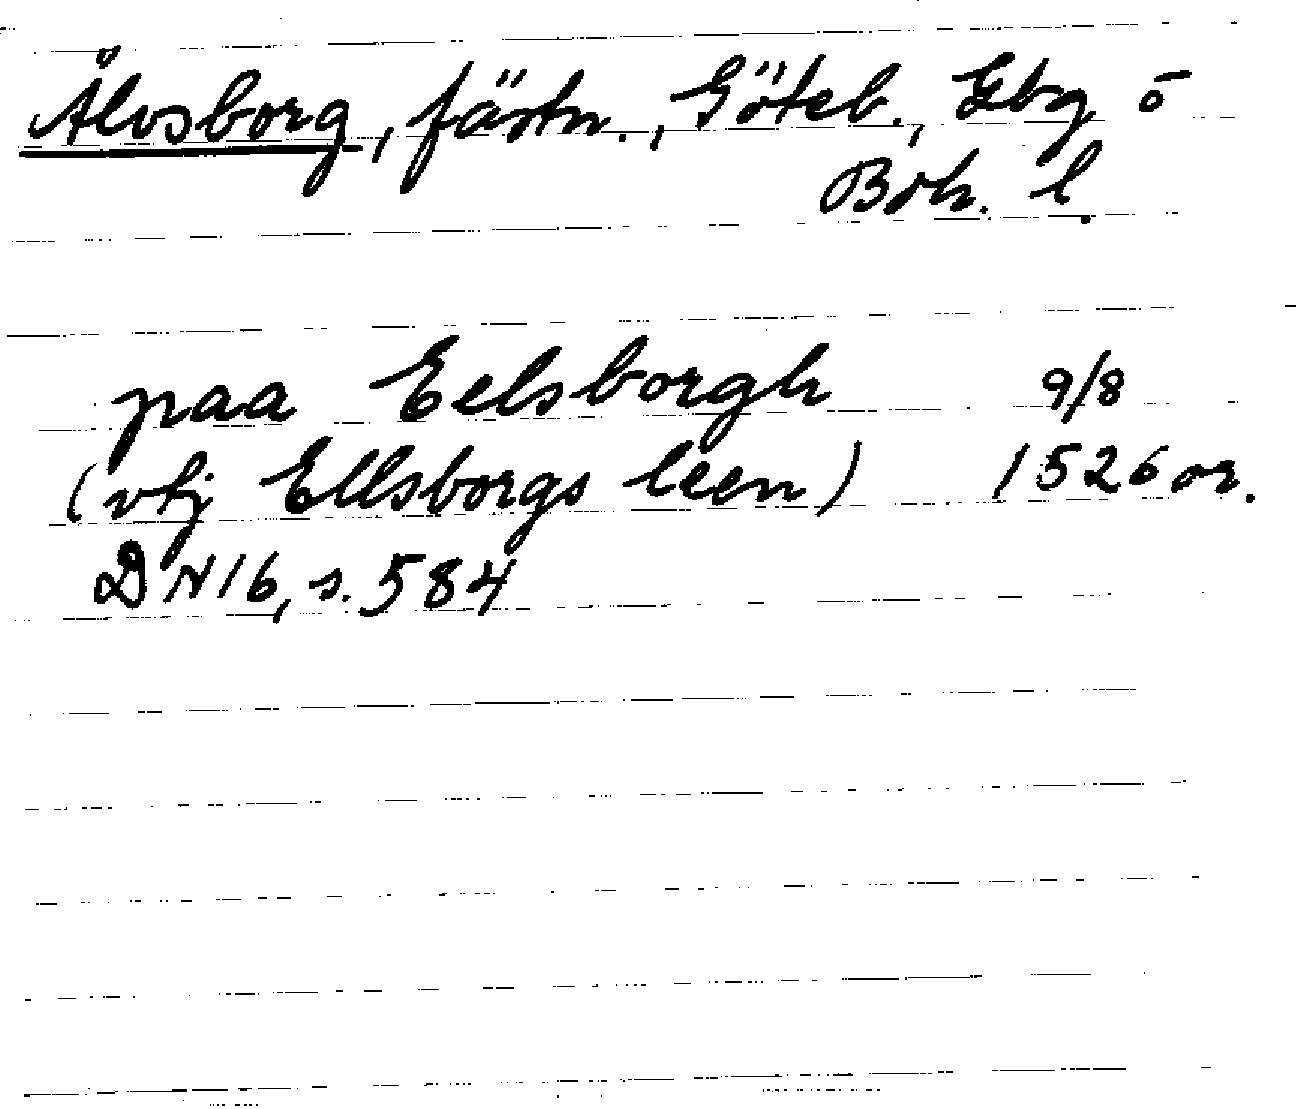 Älvsborg, fästn., Göteb., Gbg o
Boh. l.
paa Eelsborgh 9/8
(vtj Ellsborgs leen) 1526 or.
DN 16, s. 584